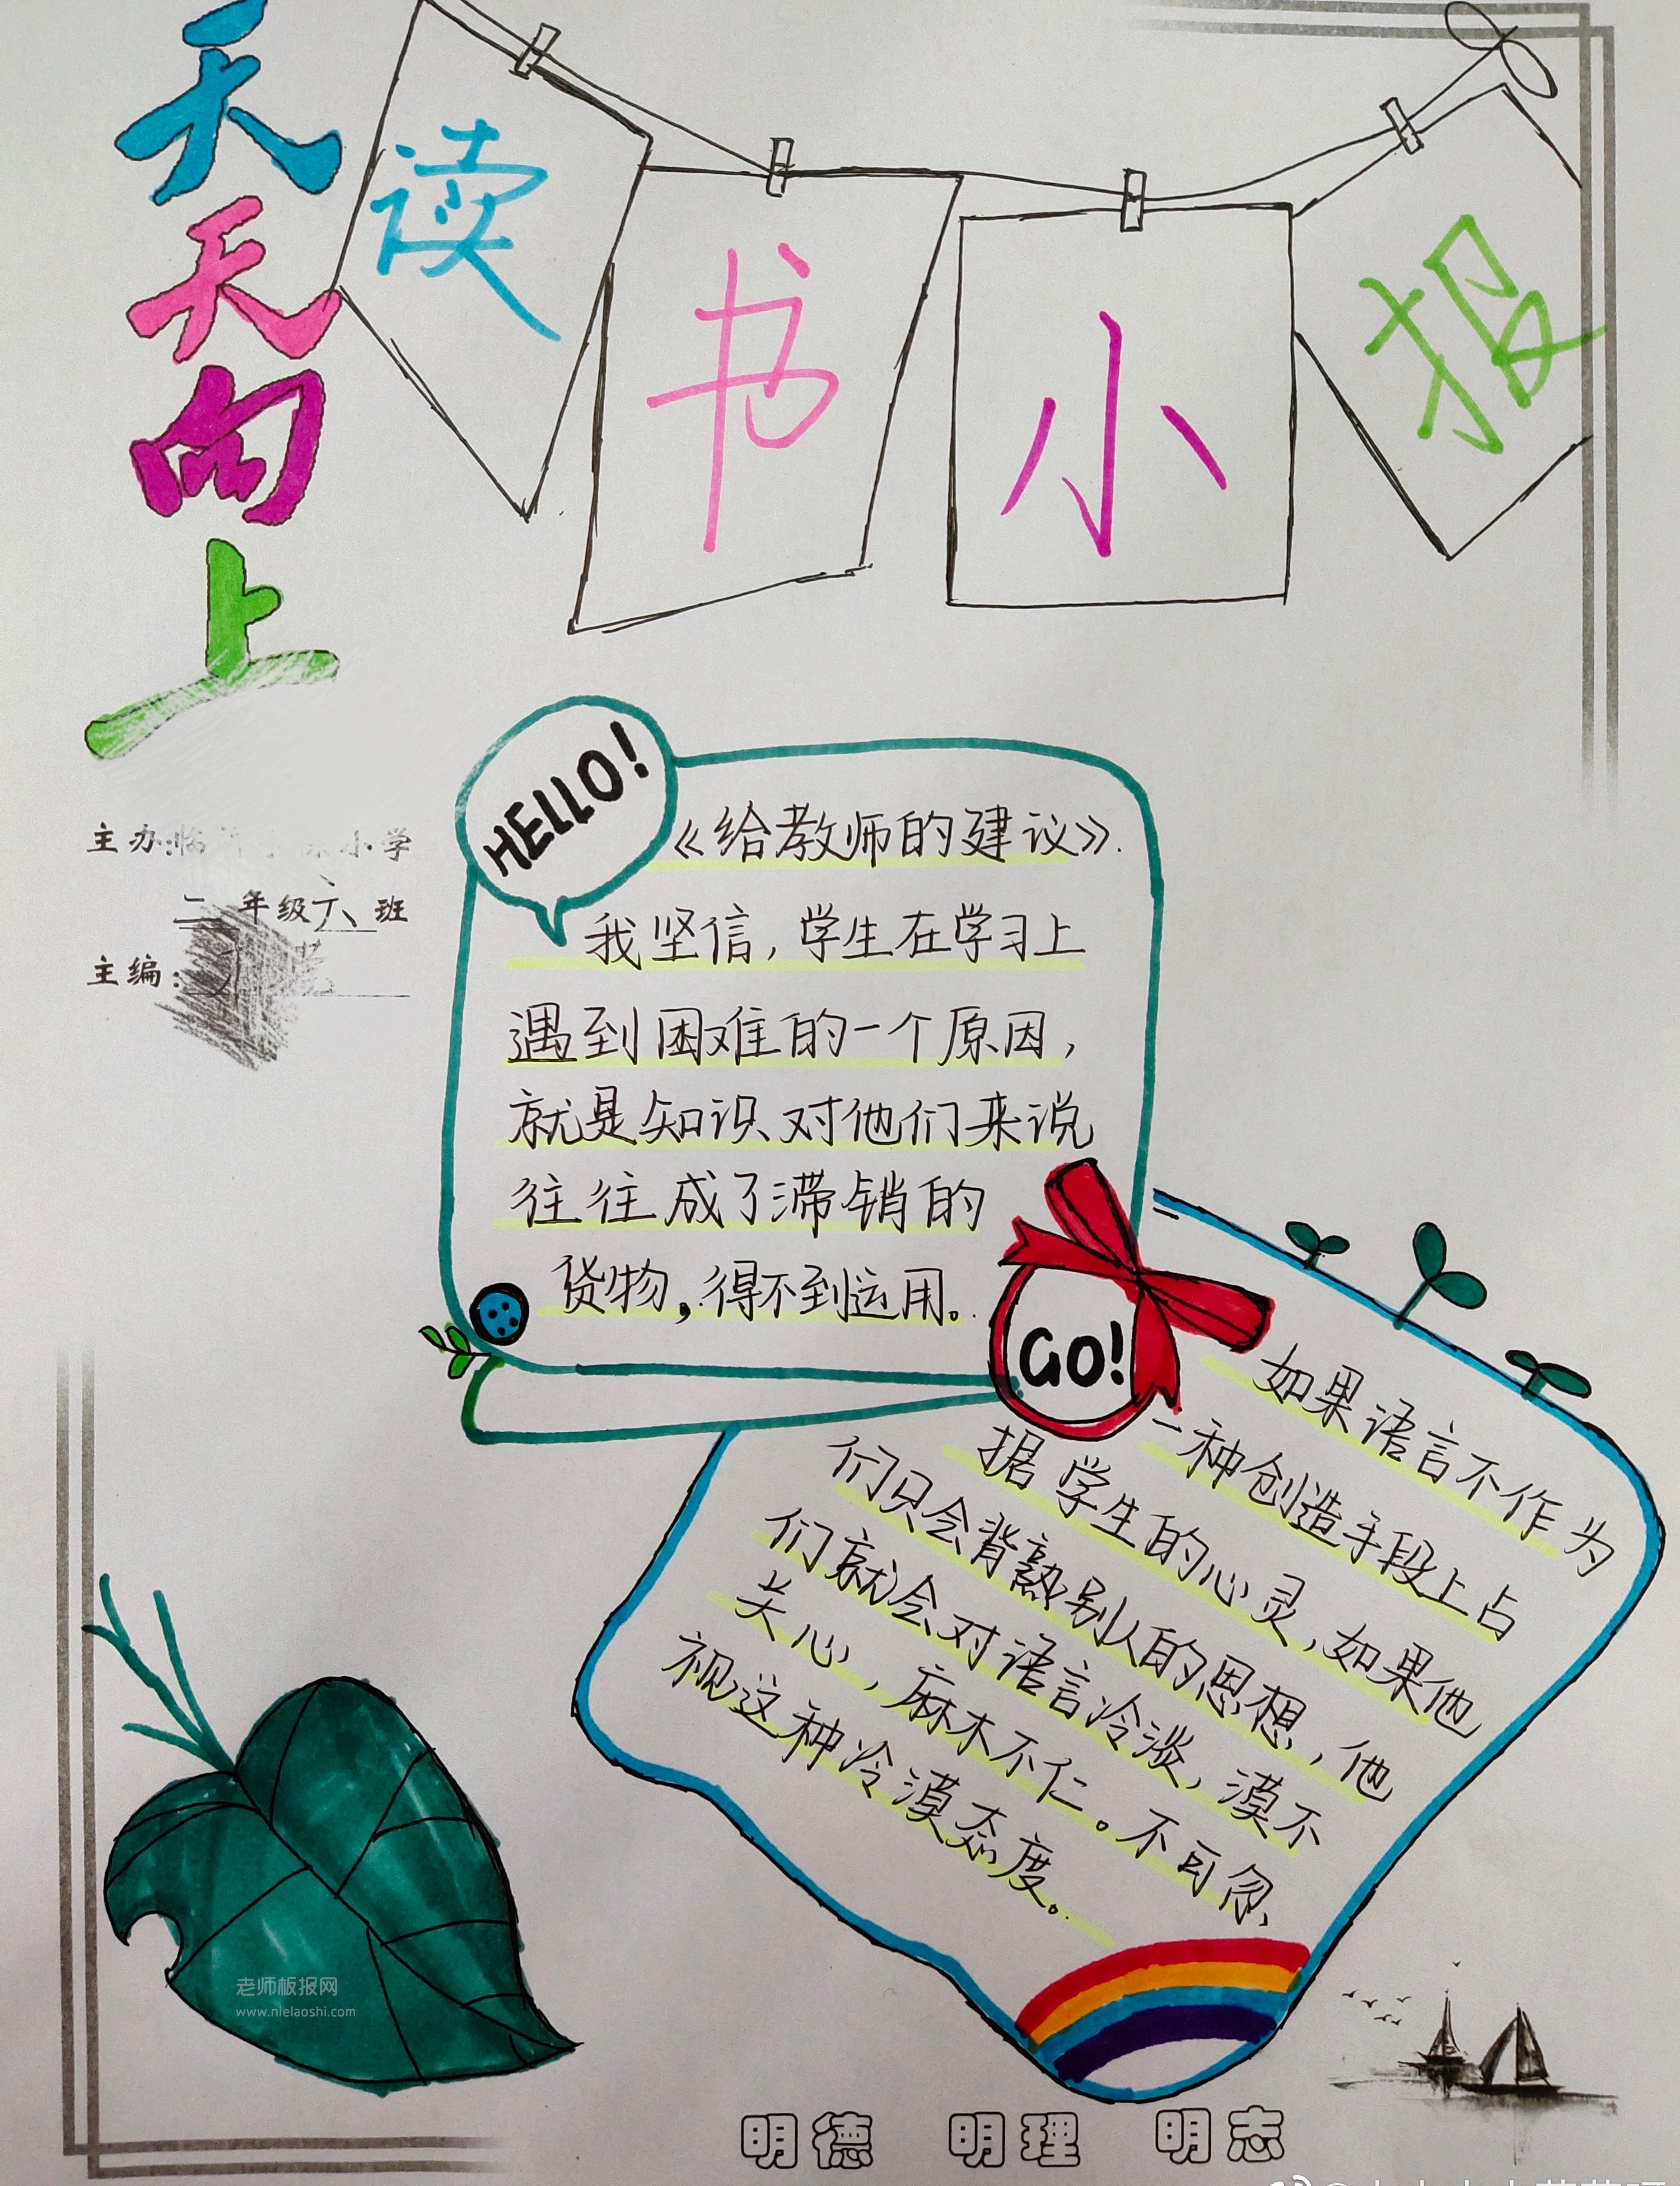 天天向上
读书小报
主办:临小学
二年级六班
主编:
HELLO!
《给教师的建议》.
我坚信,学生在学习上
遇到困难的一个原因,
就是知识对他们来说
往往成了滞销的
货物,得不到运用。
GO!
如果语言不作为
一种创造手段上占
据学生的心灵,如果他
们只会背熟别人的思想,他
们就会对语言冷淡,漠不
关心,麻木不仁。不可忽
视这种冷漠态度。
老师板报网
www.nielaoshi.com
明德 明理 明志